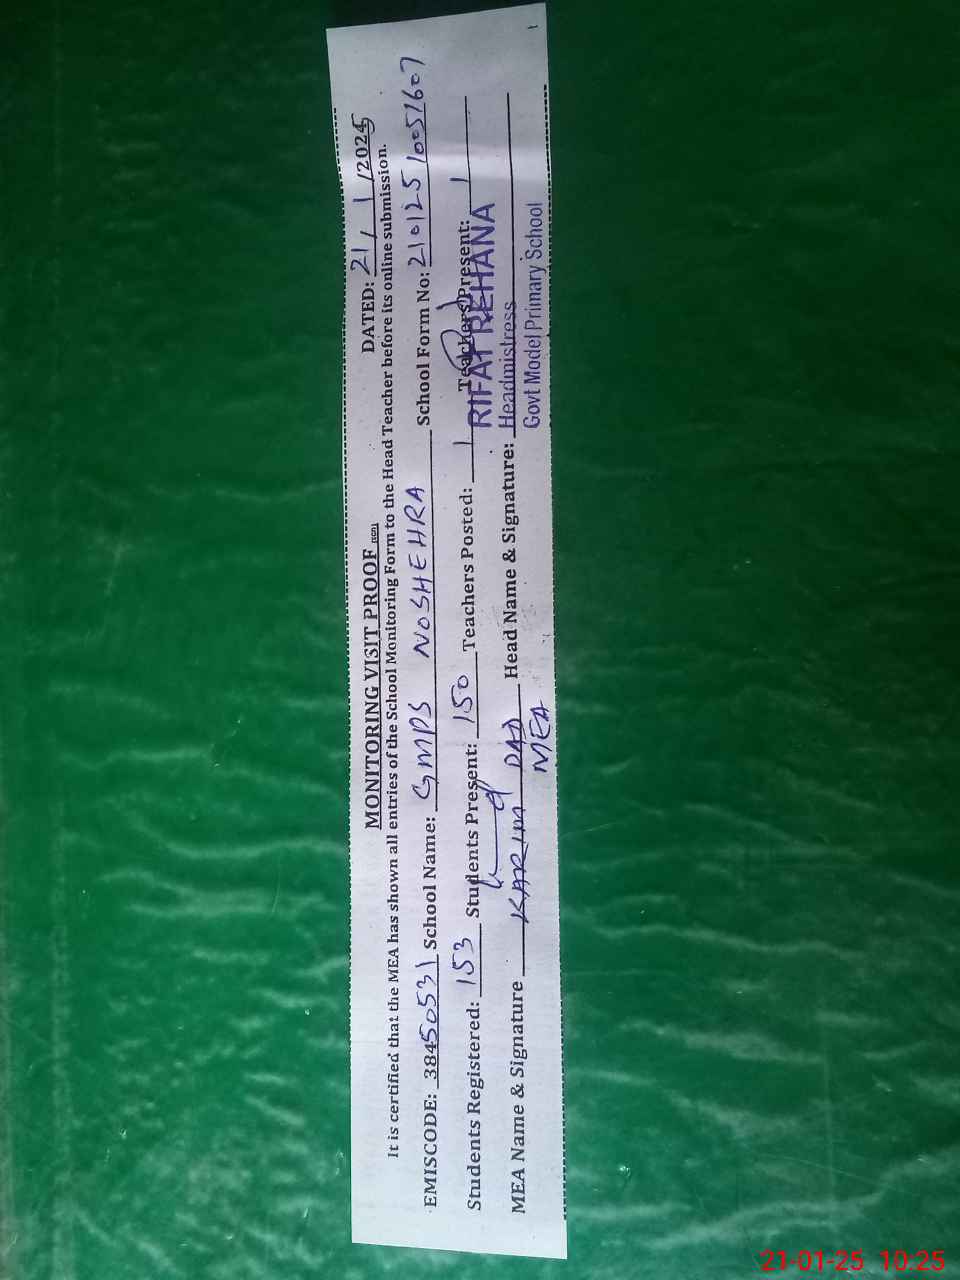 MONITORING VISIT PROOF
DATED: 21/1/2025
It is certified that the MEA has shown all entries of the School Monitoring Form to the Head Teacher before its online submission.
EMISCODE: 38450531 School Name: GMPS NOSHEHRA School Form No: 210125 10051607
Students Registered: 153 Students Present: 150 Teachers Posted: 1 Teachers Present: 1
RIFAT REHANA
MEA Name & Signature KARIM DAD Head Name & Signature: Headmistress
MEA
Govt Model Primary School
21-01-25 10:25